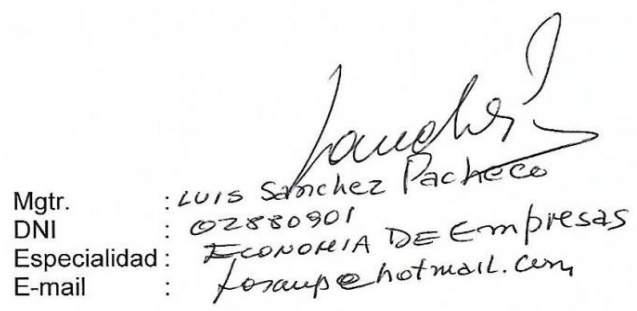 Mgtr. : LUIS Sanchez Pacheco
DNI : 02880901
Especialidad : ECONOMIA DE Empresas
E-mail :